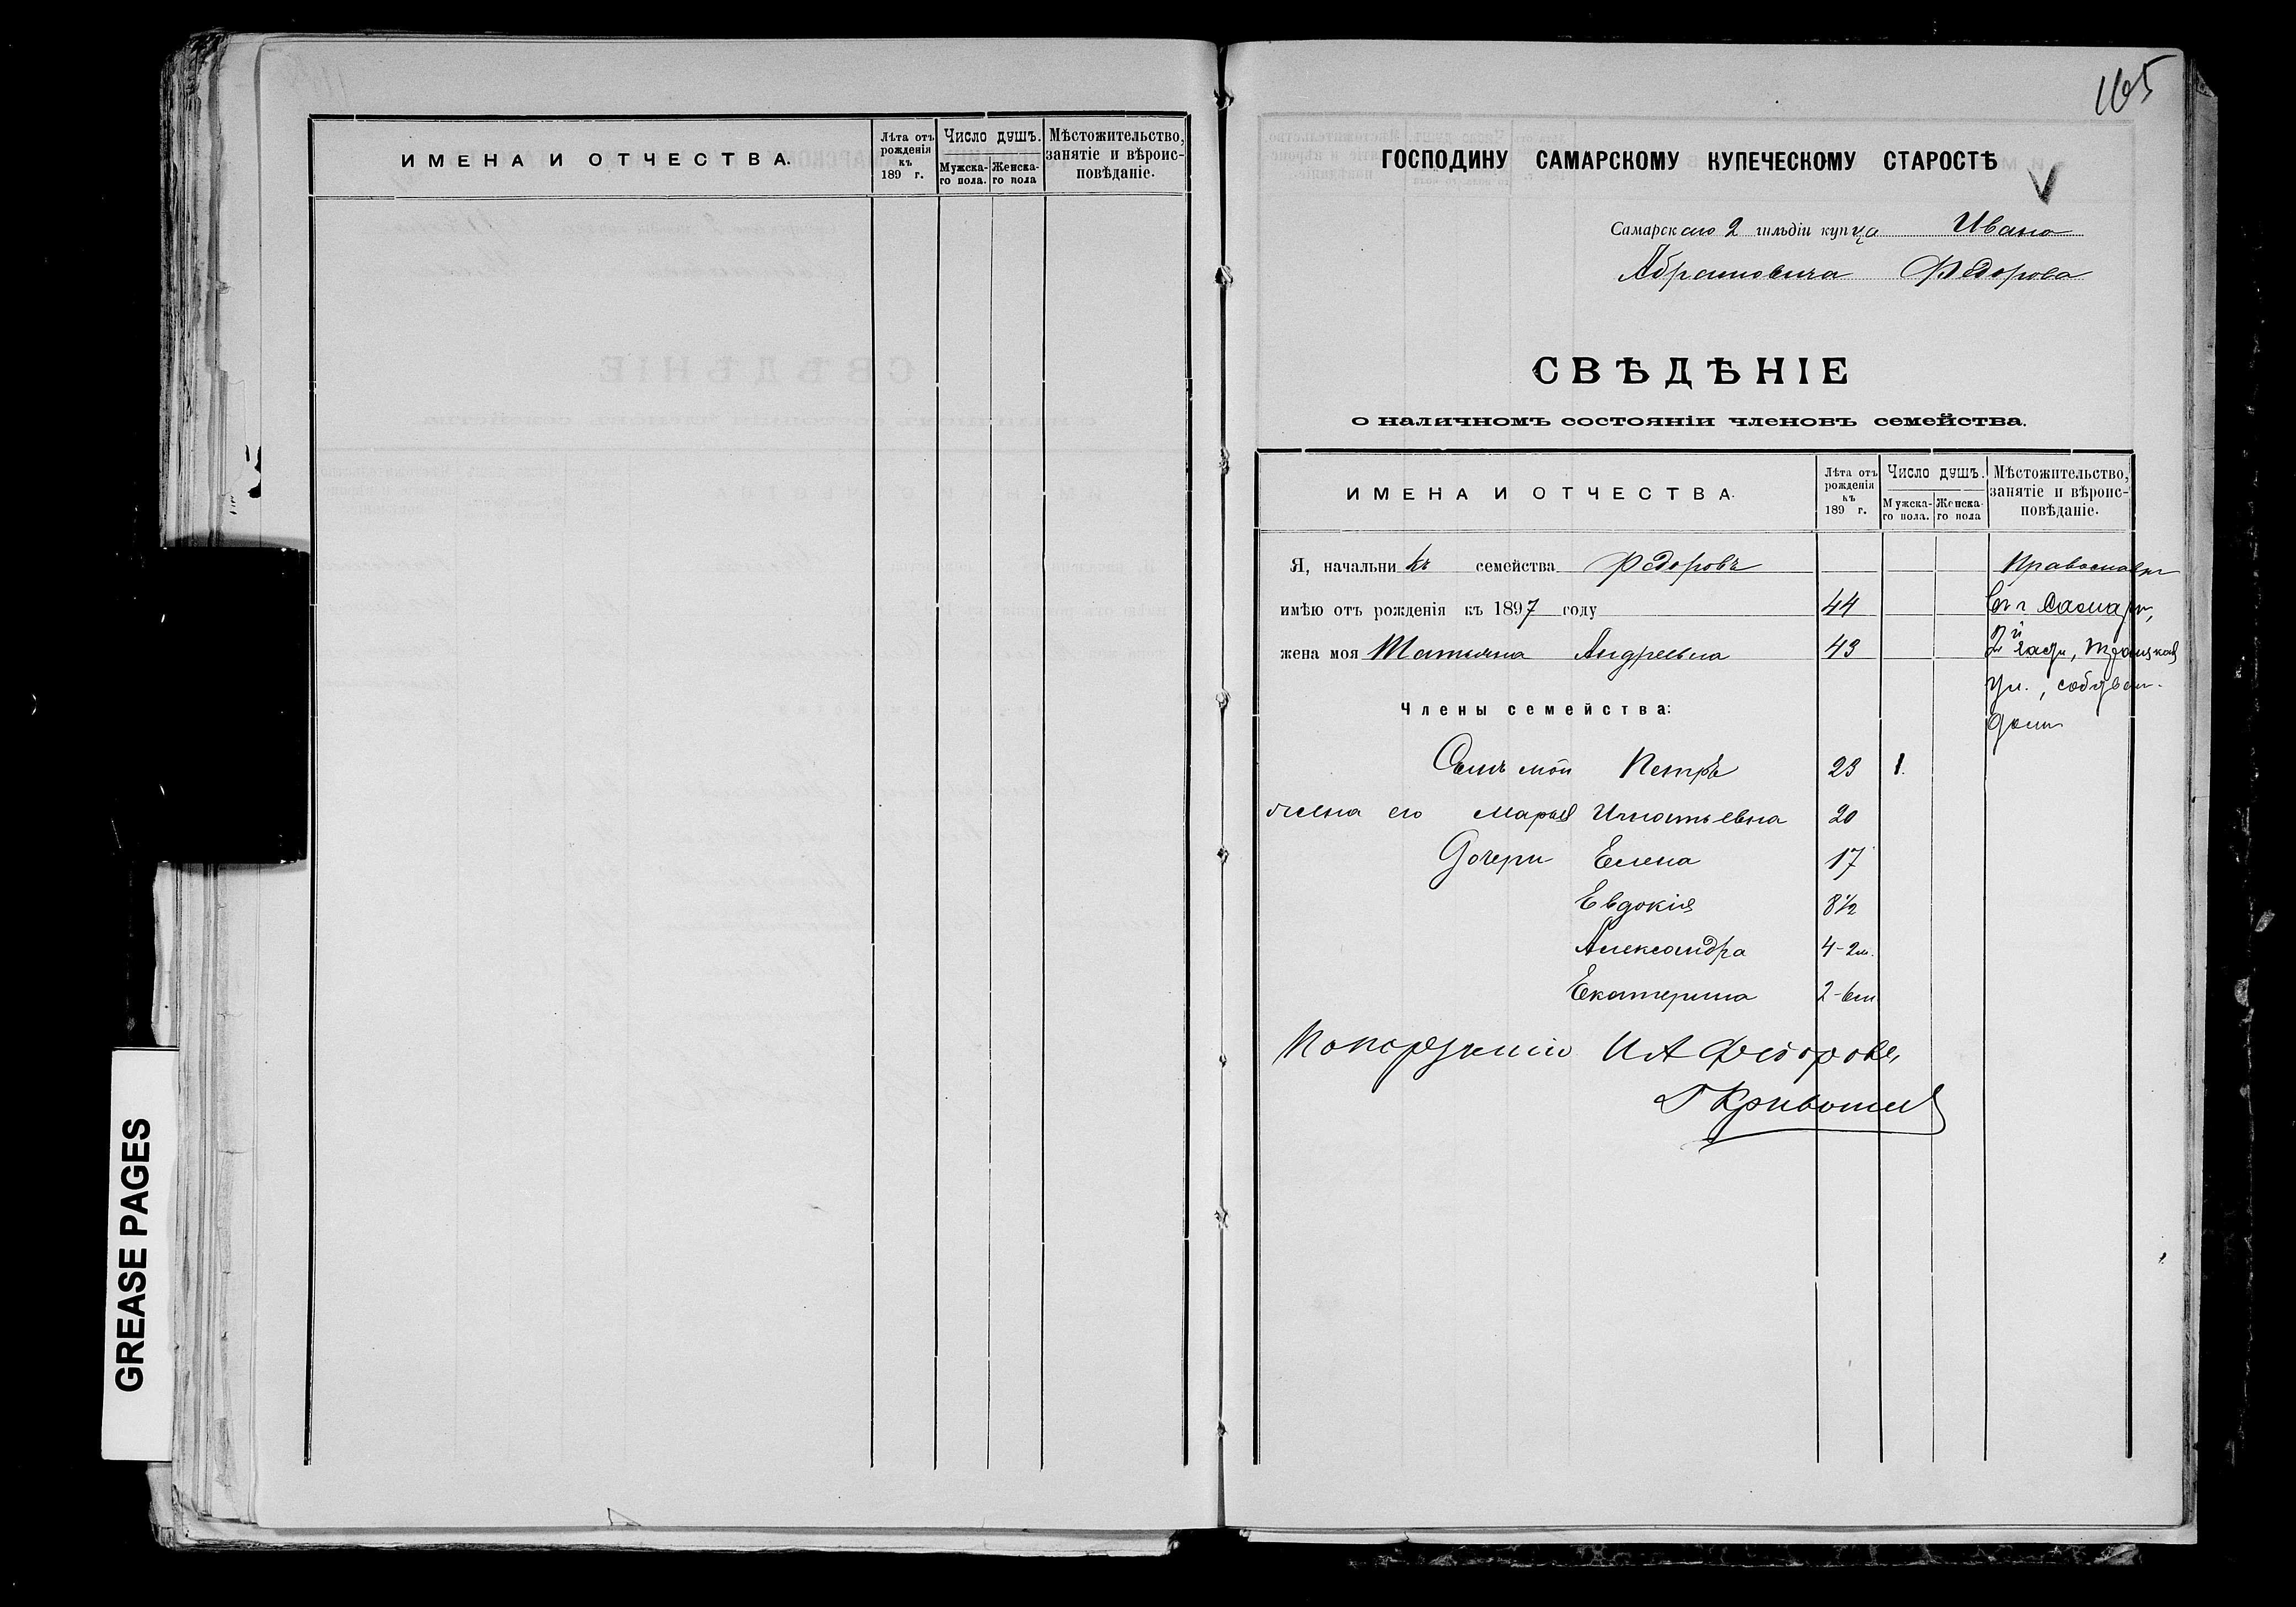 ИМЕНА И ОТЧЕСТВА.
Лѣта отъ рожденія къ 189 г.
Число душъ.
Мужска-го пола.
Женска-го пола
Мѣстожительство, занятіе и вѣроис-повѣданіе.
165
ГОСПОДИНУ САМАРСКОМУ КУПЕЧЕСКОМУ СТАРОСТѢ
Самарскаго 2 гильдіи купца Ивана
Абрамовича Федорова
СВѢДѢНІЕ
о наличномъ состояніи членовъ семейства.
ИМЕНА И ОТЧЕСТВА.
Лѣта отъ рожденія къ 189 г.
Число душъ.
Мужска-го пола.
Женска-го пола
Мѣстожительство, занятіе и вѣроис-повѣданіе.
Я, начальникъ семейства Федоровъ Православн
имѣю отъ рожденія къ 1897 году 44 въ г. Самарѣ,
жена моя Татьяна Андреевна 43 2й части, Троицкая
ул., собствен.
Члены семейства:
домъ
Сынъ мой Петръ 23 1.
жена его Марья Игнатьевна 20
Дочери Елена 17
Евдокія 8½
Александра 4-2м.
Екатерина 2-6м
По порученію И А Федорова,